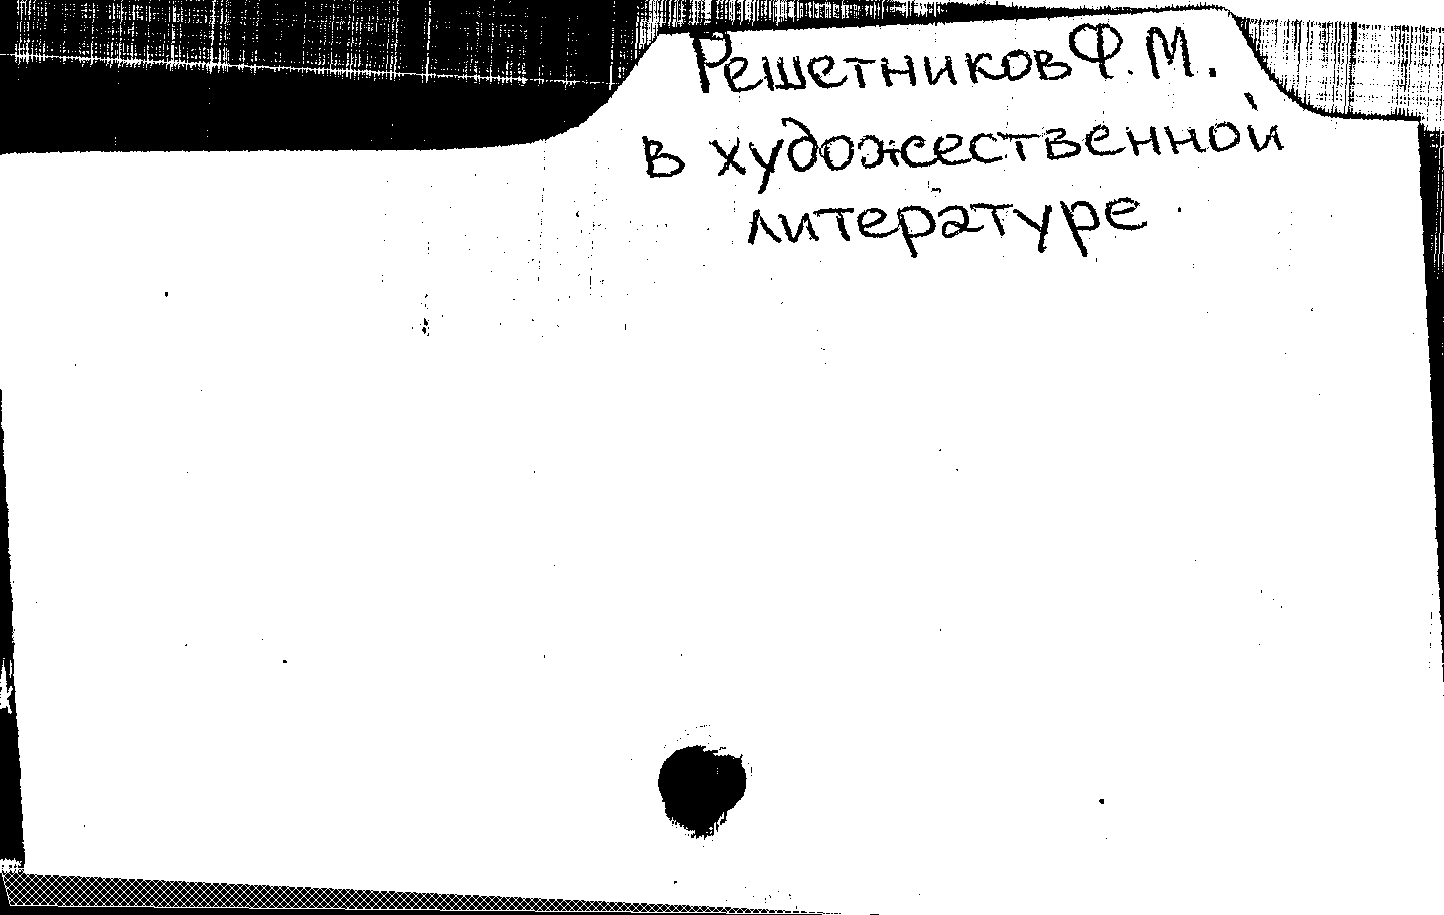 Решетников Ф. М.
в художественной
литературе